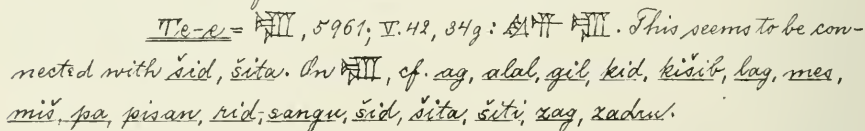 Te-e = 𒋃, 5961; V. 42, 34g: 𒋃. This seems to be con-
nected with šid, šita. On 𒋃, cf. ag, alal, gil, kid, kišib, lag, mes,
miš, pa, pisan, rid, sangu, šid, šita, šiti, zag, zadru.